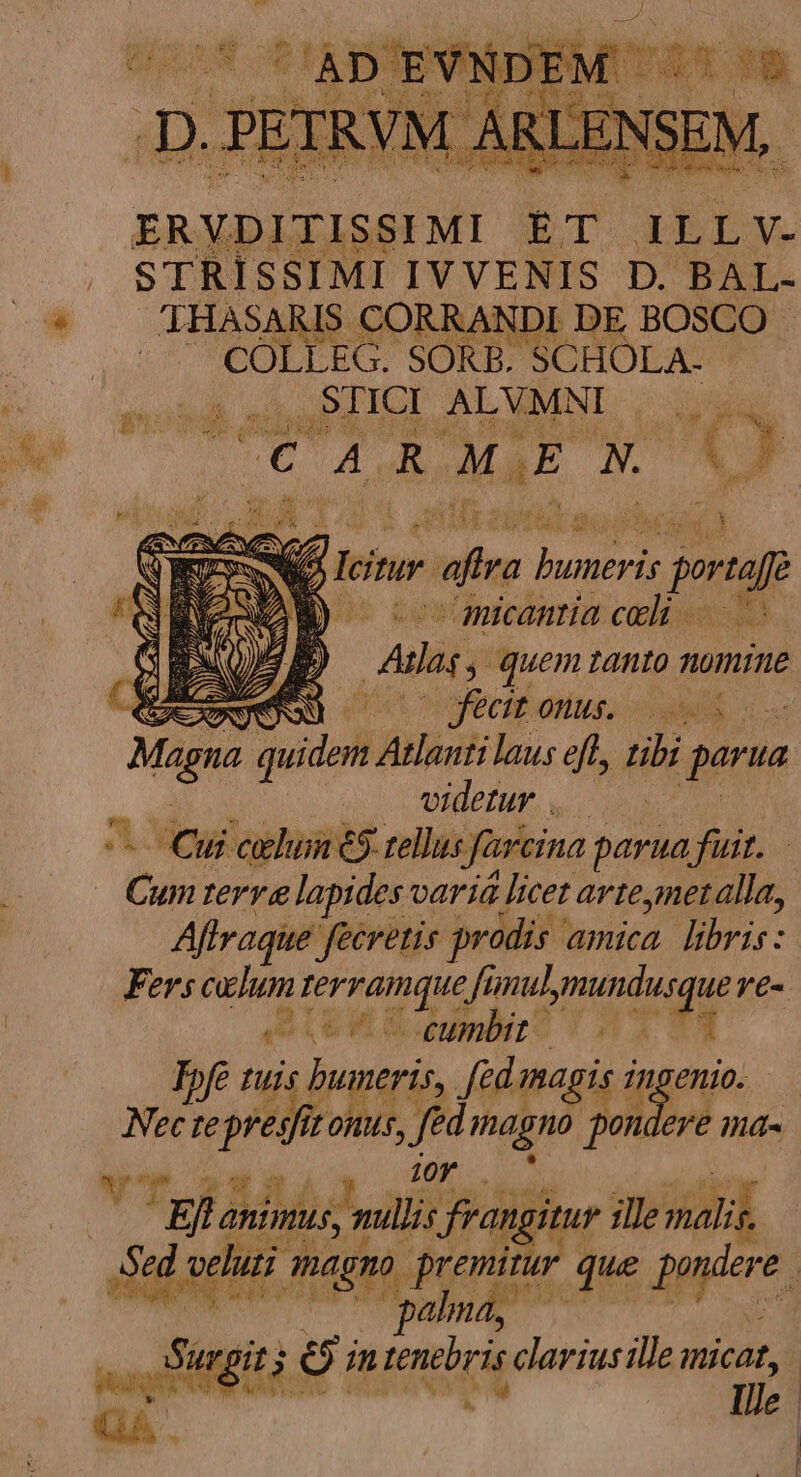 AD EVNDEM
D. PETRVM ARLENSEM,
ERVDITISSIMI ET ILLV-
STRISSIMI IVVENIS D. BAL-
THASARIS CORRANDI DE BOSCO
COLLEG. SORB. SCHOLA-
STICI ALVMNI
CARMEN.
DIcitur aſtra humeris portaſſe
micantia cœli
Atlas, quem tanto nomine
fecit onus.
Magna quidem Atlanti laus eſt, tibi parua
videtur
Cui cœlum & tellus ſarcina parua fuit.
Cum terræ lapides variâ licet arte, metalla,
Aſtraque ſecretis prodis amica libris:
Fers cœlum terramque ſimul, mundusque re-
cumbit
Ipſe tuis humeris, ſed magis ingenio.
Nec te preſſit onus, ſed magno pondere ma-
ior
Eſt animus, nullis frangitur ille malis.
Sed veluti magno premitur quæ pondere
palma,
Surgit; & in tenebris clarius ille micat,
Ille